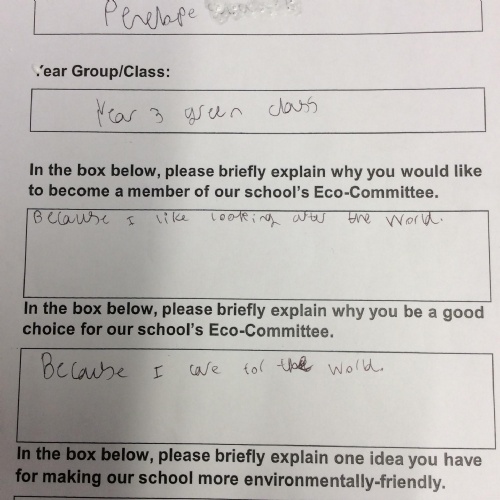 Penelope
Year Group/Class:
Year 3 green class
In the box below, please briefly explain why you would like
to become a member of our school's Eco-Committee.
Because I like looking after the world.
In the box below, please briefly explain why you be a good
choice for our school's Eco-Committee.
Because I care for the world.
In the box below, please briefly explain one idea you have
for making our school more environmentally-friendly.